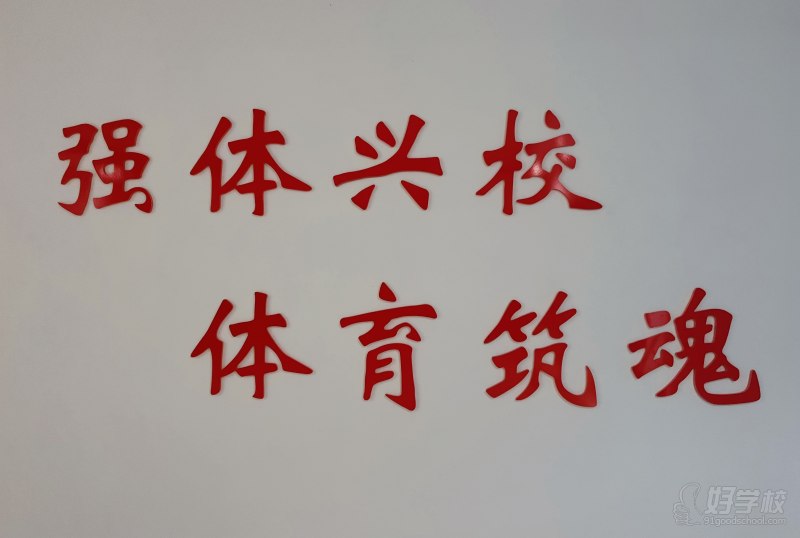 强体兴校
体育筑魂
好学校
91goodschool.com